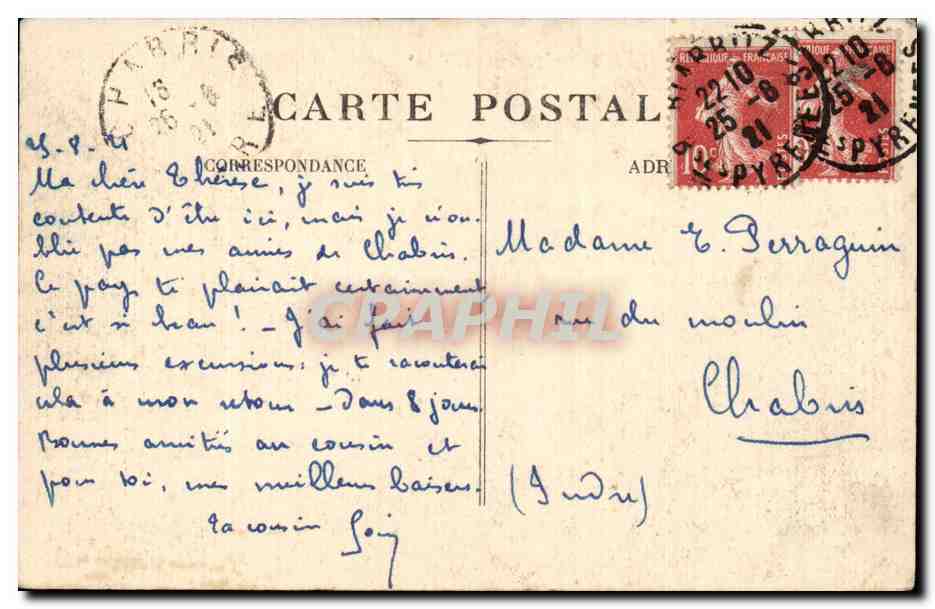 CHABRIS
INDRE
CARTE POSTALE
BIARRITZ
22 10
25-8
21
Bses PYRENEES
REPUBLIQUE FRANCAISE
10c
POSTES
CORRESPONDANCE
ADR
25-8-21
Ma chère Thérèse, je suis très
contente d'être ici, mais je n'ou-
blie pas mes amies de Chabris.
Ce pays te plairait certainement
c'est si beau ! - J'ai fait
plusieurs excursions, je te raconterai
cela à mon retour - Dans 8 jours.
Bonnes amitiés au cousin et
pour toi, mes meilleurs baisers.
Ta cousine
Madame E. Perraguin
rue du moulin
Chabris
(Indre)
CPAPHIL